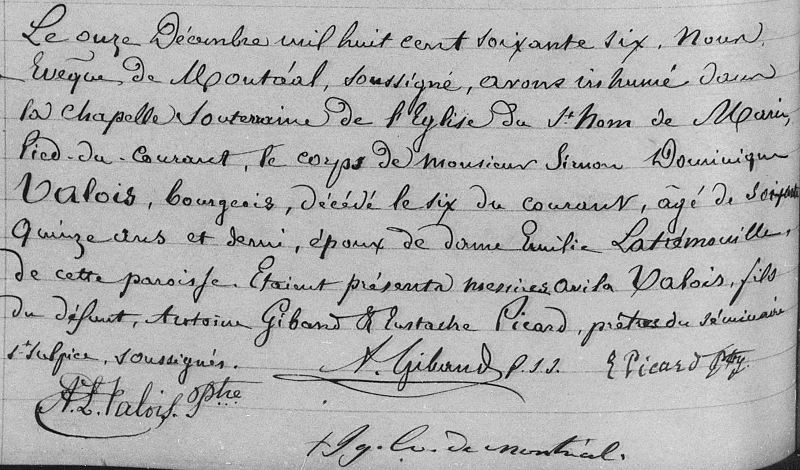 Le onze Décembre mil huit cent soixante six, Nous,
Evêque de Montréal, soussigné, avons inhumé dans
la chapelle souterraine de l'Eglise du St Nom de Marie,
Pied-du-Courant, le corps de monsieur Simon Dominique
Valois, bourgeois, décédé le six du courant, âgé de soixante
quinze ans et demi, époux de dame Emilie Latrémouille,
de cette paroisse. Etaient présents messires avila Valois, fils
du défunt, Antoine Giband & Eustache Picard, prêtres du séminaire
St Sulpice, soussignés.
A. Giband p.s.s.
E Picard Ptre
A. L. Valois. Ptre
+ Ig. Ev. de Montréal.